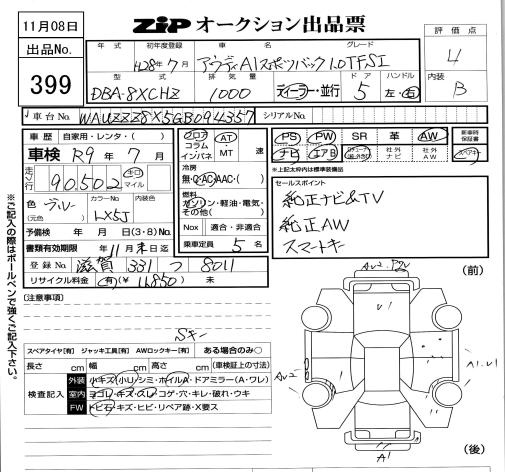 11月08日
出品No.
399
ZIP オークション出品票
評価点
4
内装
B
年式 初年度登録 車名 グレード
H28年7月 アウディA1スポーツバック1.0TFSI
型式 排気量 ドア ハンドル
DBA-8XCHZ 1000 ディーラー・並行 5 左・右
車台No. WAUZZZ8X5GB094357 シリアルNo.
車歴 自家用・レンタ・( )
車検 R9年7月
走行 90,502 キロ マイル
色 ブルー (元色) カラーNo. LX5J 内装色
予備検 年 月 日(3・8)No.
書類有効期限 年11月末日迄
登録No. 滋賀 331 つ 8011
リサイクル料金 有(¥ 11,850) 未
フロア コラム インパネ AT・MT 速
冷房 無・C・AC・AAC・( )
燃料 ガソリン・軽油・電気・その他( )
Nox 適合・非適合
乗車定員 5名
PS PW SR 革 AW 新車時保証書
ナビ エアB 社外ナビ 社外AW スペアキー
※上記太枠内は標準装備品
セールスポイント
純正ナビ&TV
純正AW
スマートキー
〔注意事項〕
Sキー
スペアタイヤ[有] ジャッキ工具[有] AWロックキー[有] ある場合のみ○
長さ cm 幅 cm 高さ cm (車検証上の寸法)
検査記入
外装 小キズ・小U・シミ・ホイルA・ドアミラー(A・ワレ)
室内 ヨゴレ・キズ・スレ・コゲ・穴・キレ・破れ・ウキ
FW トビ石・キズ・ヒビ・リペア跡・X要ス
(前)
U1
A1.U1
A1
(後)
※ご記入の際はボールペンで強くご記入下さい。